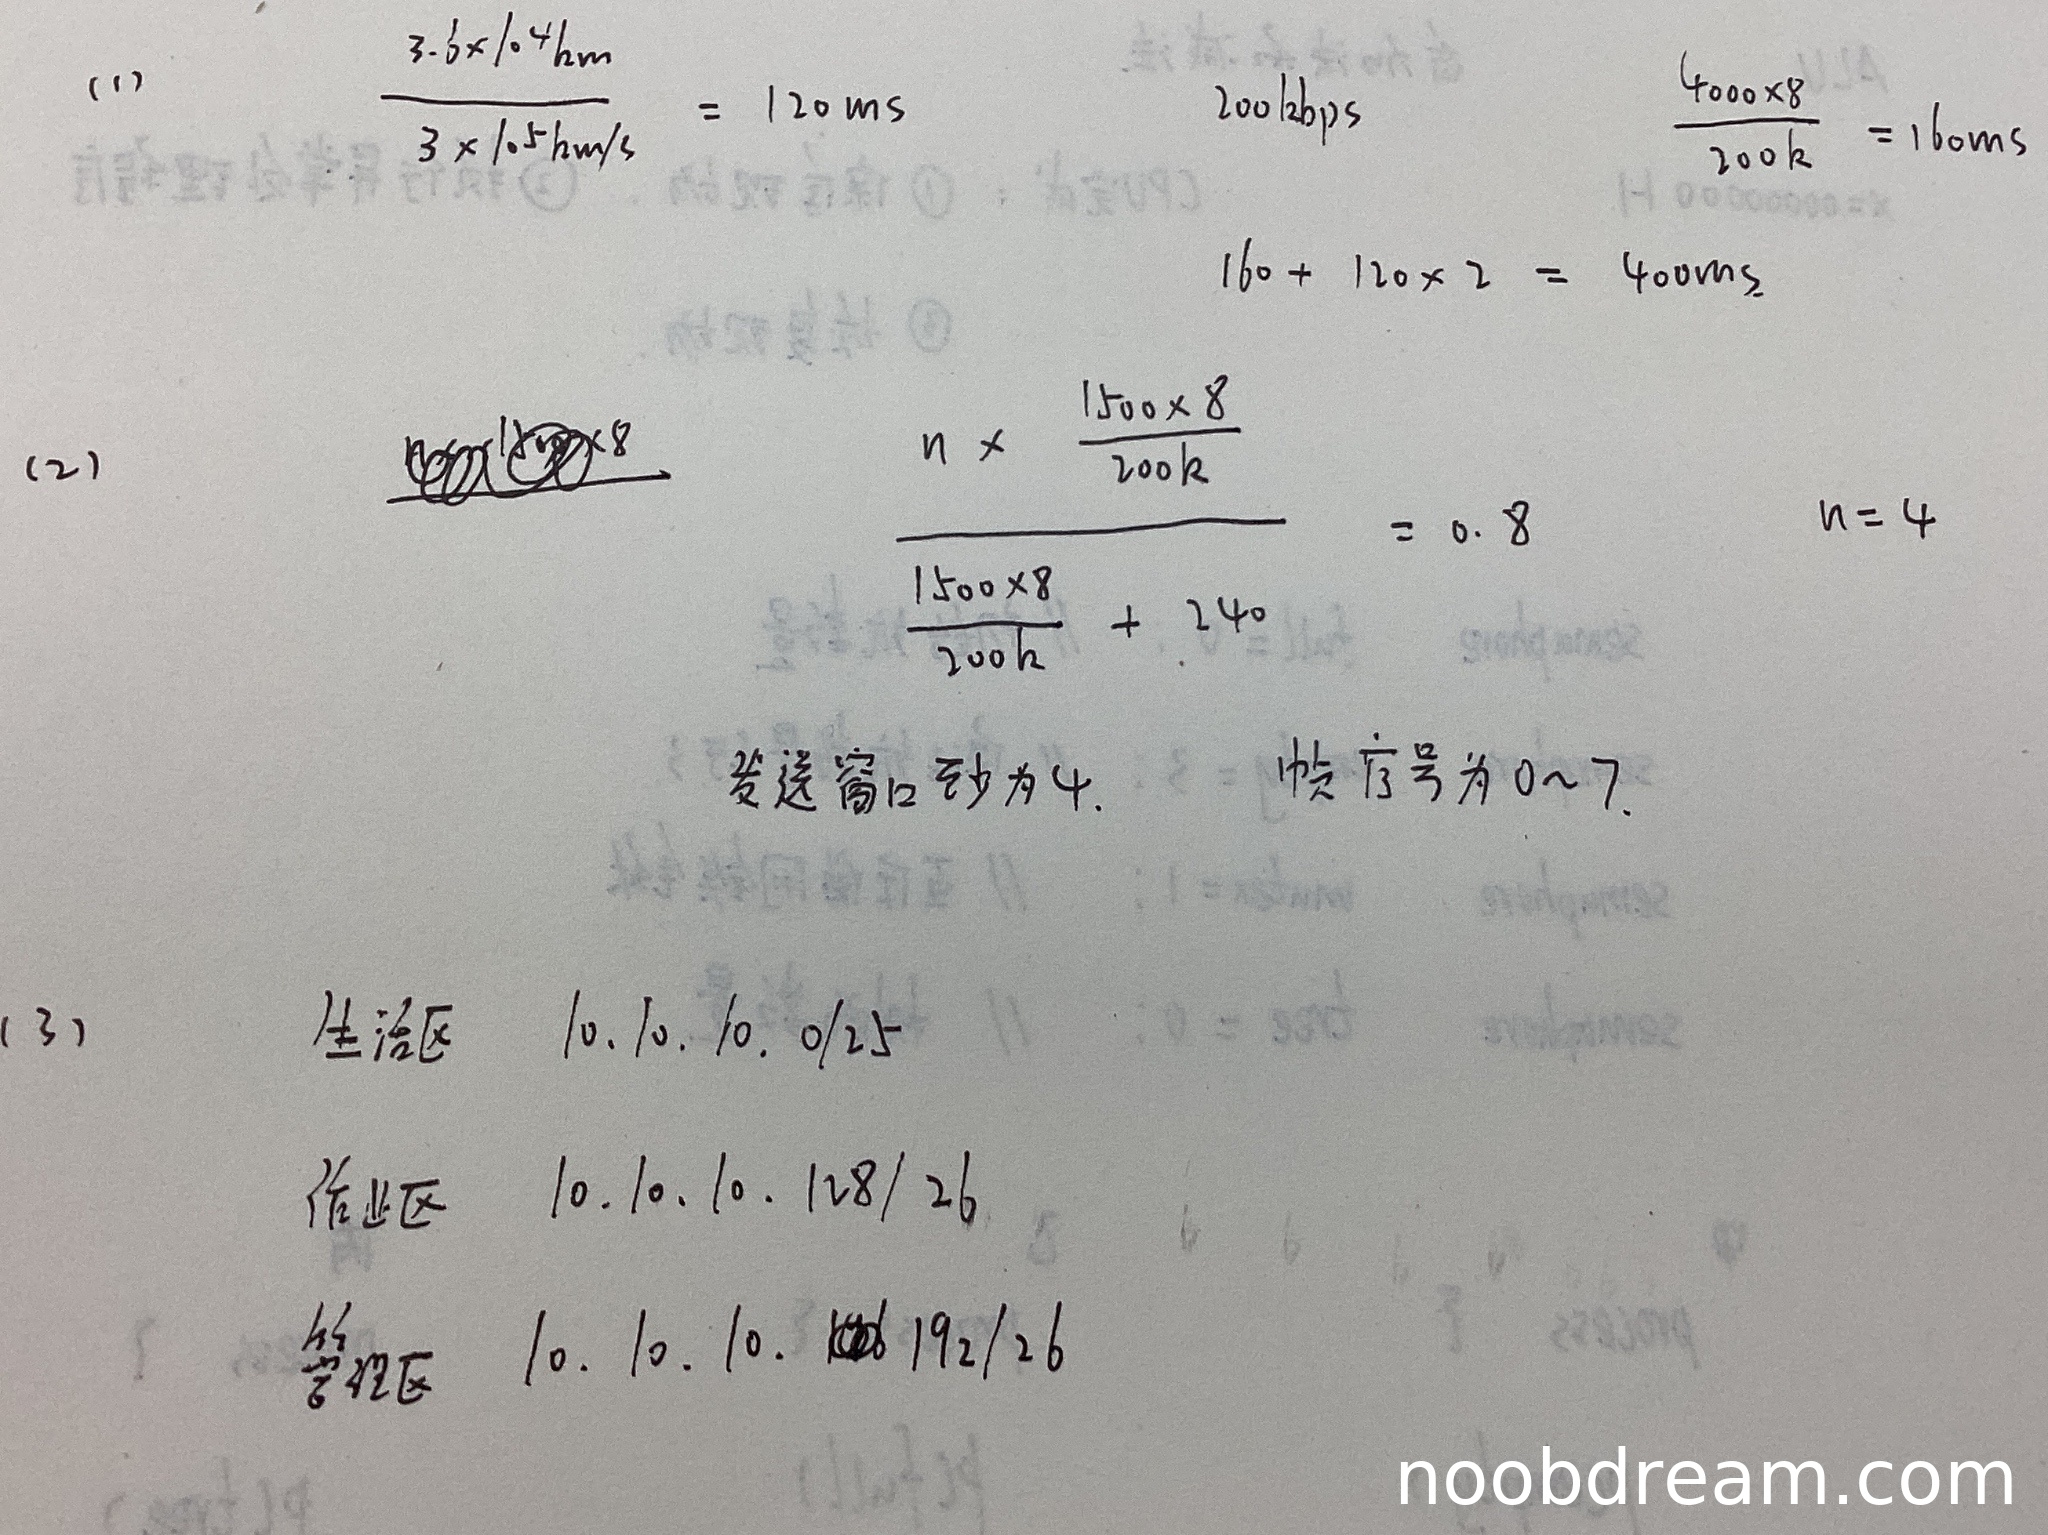 (1) 3.6×10^4km / 3×10^5km/s = 120ms 200kbps 4000×8 / 200k = 160ms
160 + 120×2 = 400ms
(2) n × (1500×8 / 200k) / (1500×8 / 200k + 240) = 0.8 n=4
发送窗口至少为4. 帧序号为0~7.
(3) 生活区 10.10.10.0/25
作业区 10.10.10.128/26
管理区 10.10.10.192/26
noobdream.com